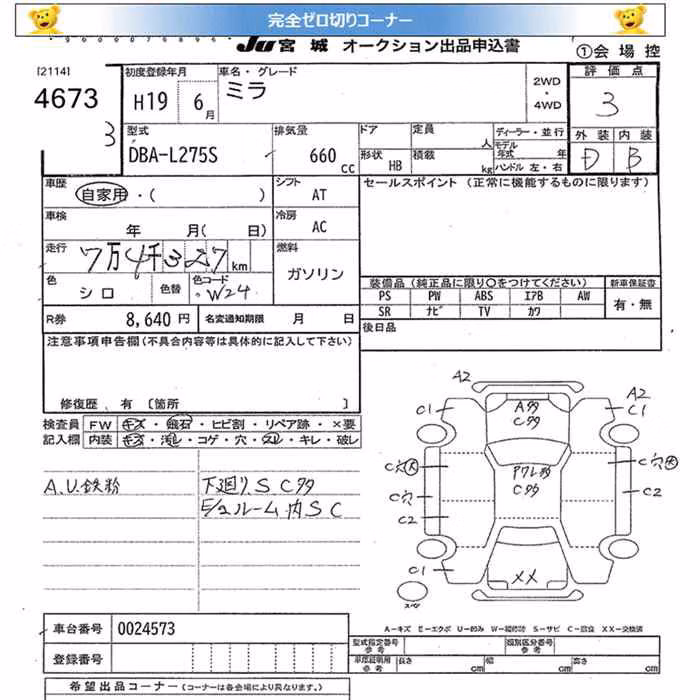 完全ゼロ切りコーナー
JU 宮城 オークション出品申込書
①会場控
[2114]
4673
3
初度登録年月
H19 6月
車名・グレード
ミラ
2WD
・
4WD
評価点
3
型式
DBA-L275S
排気量
660 cc
ドア
定員 人
形状 HB
積載 kg
ディーラー・並行
モデル年式 年
ハンドル 左・右
外装 内装
D B
車歴
自家用・( )
シフト
AT
セールスポイント (正常に機能するものに限ります)
車検
年 月( 日)
冷房
AC
走行
7万4千327km
燃料
ガソリン
色
シロ
色替
色コード
W24
装備品(純正品に限り○をつけてください)
新車保証書
PS PW ABS エアB AW
有・無
SR ナビ TV カワ
R券 8,640円
名変通知期限 月 日
後日品
注意事項申告欄(不具合内容等は具体的に記入して下さい)
修復歴、有 〔箇所 〕
検査員記入欄
FW キズ・飛石・ヒビ割・リペア跡・×要
内装 キズ・汚レ・コゲ・穴・スレ・キレ・破レ
A.U.鉄粉
下廻りSC多
E/Gルーム内SC
A2
C1
A多
C多
A2
C1
C穴大
アワレ多
C多
C穴大
C穴
C2
C2
C1
XX
スペア
A-キズ E-エクボ U-凹み W-補修跡 S-サビ C-腐食 XX-交換済
車台番号 0024573
登録番号
型式指定番号 参考
類別区分番号 参考
車庫証明用 参考
長さ cm
幅 cm
高さ cm
希望出品コーナー(コーナーは各会場により異なります。)